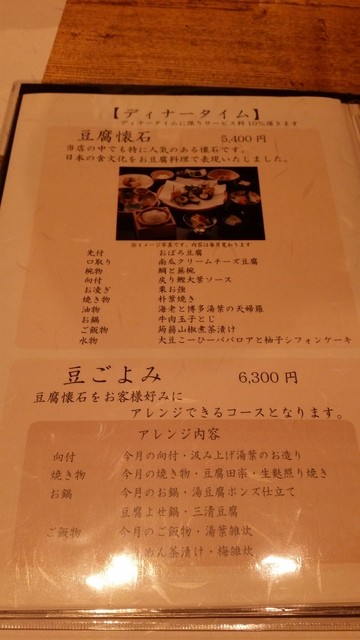 【ディナータイム】
ディナータイムに限りサービス料10%頂きます
豆腐懐石 5,400円
当店の中でも特に人気のある懐石です。
日本の食文化をお豆腐料理で表現いたしました。
※イメージ写真です。内容は毎月変わります
先付 おぼろ豆腐
口取り 南瓜クリームチーズ豆腐
椀物 鯛と蕪椀
向付 戻り鰹大葉ソース
お凌ぎ 栗お強
焼き物 朴葉焼き
油物 海老と博多湯葉の天婦羅
お鍋 牛肉玉子とじ
ご飯物 蒟蒻山椒煮茶漬け
水物 大豆こーひーババロアと柚子シフォンケーキ
豆ごよみ 6,300円
豆腐懐石をお客様好みに
アレンジできるコースとなります。
アレンジ内容
向付 今月の向付・汲み上げ湯葉のお造り
焼き物 今月の焼き物・豆腐田楽・生麩照り焼き
お鍋 今月のお鍋・湯豆腐ポンズ仕立て
豆腐よせ鍋・三清豆腐
ご飯物 今月のご飯物・湯葉雑炊
めん茶漬け・梅雑炊